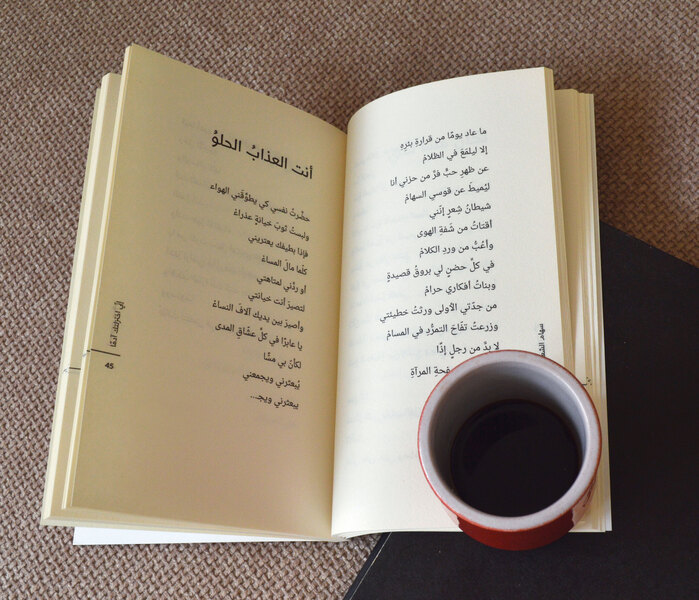 ما عاد يومًا من قرارةِ بئرِهِ
إلا ليلمَعَ في الظلامْ
عن ظهرِ حبٍّ فرَّ من حزني أنا
ليُميطَ عن قوسي السهامْ
شيطانُ شِعرٍ إنّني
أقتاتُ من شَفةِ الهوى
وأعُبُّ من وردِ الكلامْ
في كلِّ حضنٍ لي بروقُ قصيدةٍ
وبناتُ أفكاري حرامْ
من جدّتي الأولى ورثتُ خطيئتي
وزرعتُ تفّاحَ التمرُّدِ في المسامْ
لا بدَّ من رجلٍ إذًا
المرآةِ
سهام
أنت العذابُ الحلوُ
حضّرتُ نفسي كي يطوّقَني الهواء
ولبستُ ثوبَ خيانةٍ عذراءْ
فإذا بطيفك يعتريني
كلّما مالَ المساءْ
أو ردّني لمتاهتي
لتصيرَ أنت خيانتي
وأصيرَ بين يديك آلافَ النساءْ
يا عابرًا في كلِّ عشّاقِ المدى
لكأنَ بي مسًّا
يُبعثرني ويجمعني
يبعثرني ويجـ...
45